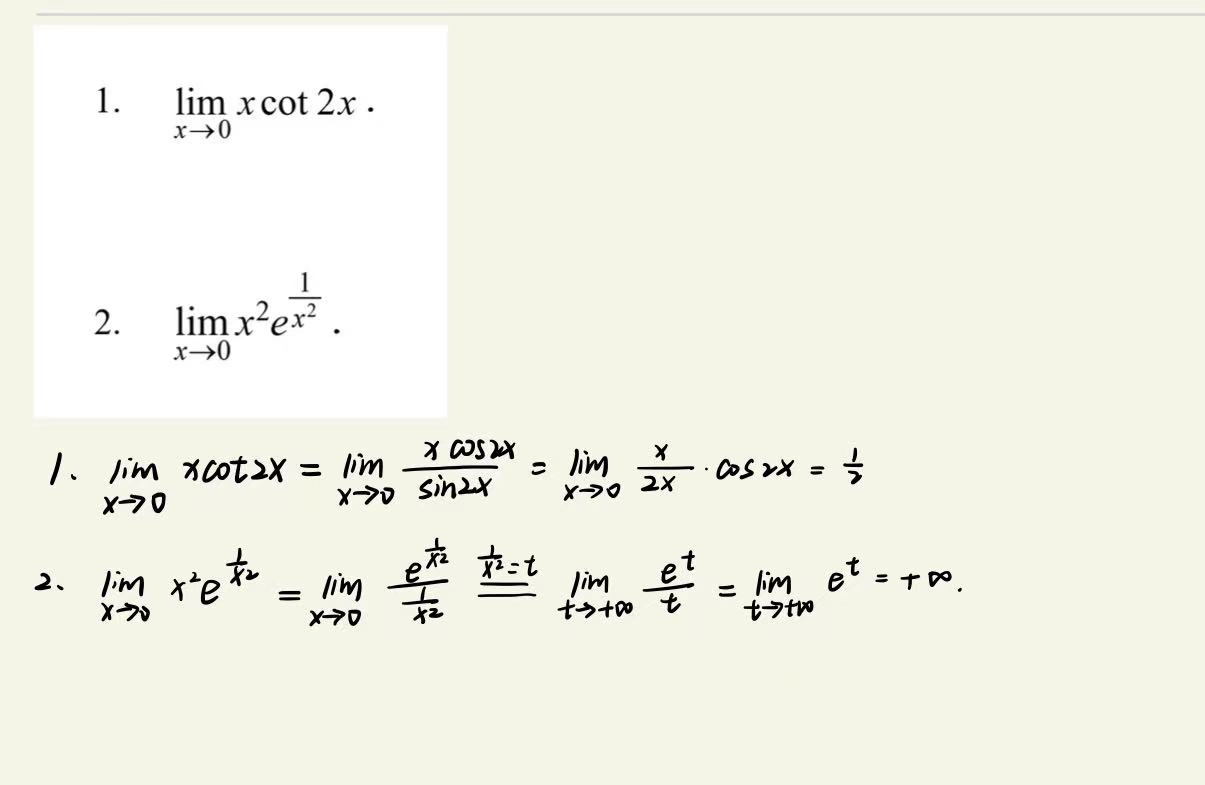 1. lim x→0 x cot 2x .
2. lim x→0 x²e^(1/x²) .
1、lim x→0 xcot2x = lim x→0 (x cos2x)/(sin2x) = lim x→0 x/(2x) · cos2x = 1/2
2、lim x→0 x²e^(1/x²) = lim x→0 (e^(1/x²))/(1/x²) =(1/x²=t)= lim t→+∞ e^t/t = lim t→+∞ e^t = +∞.